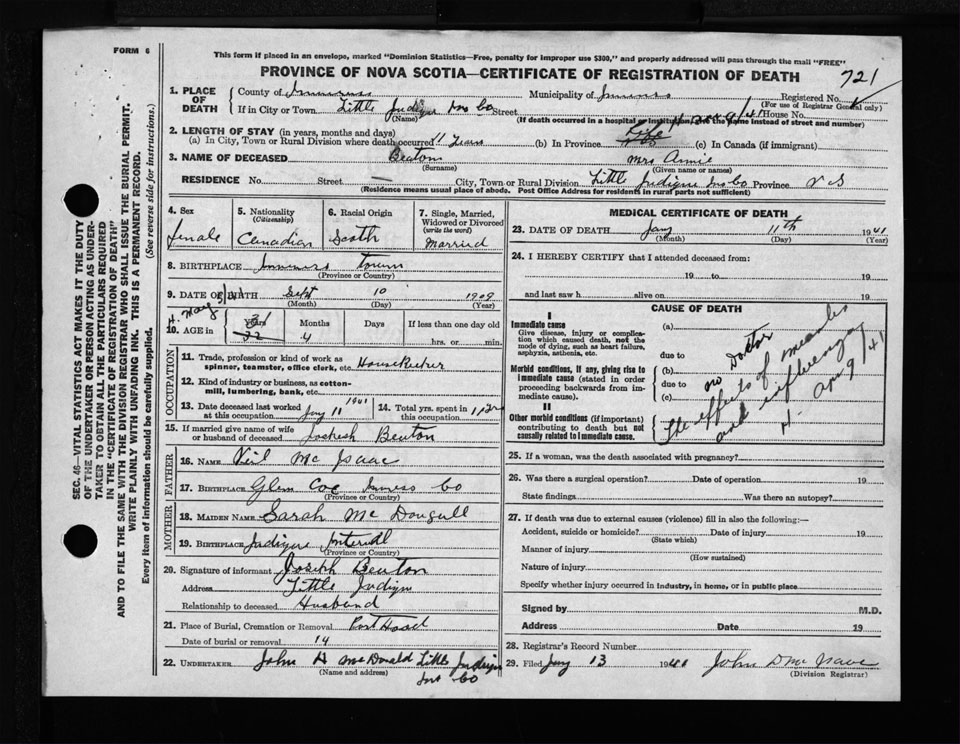 FORM 6
This form if placed in an envelope, marked "Dominion Statistics—Free, penalty for improper use $300," and properly addressed will pass through the mail "FREE"
PROVINCE OF NOVA SCOTIA—CERTIFICATE OF REGISTRATION OF DEATH
721
1. PLACE OF DEATH
County of Inverness Municipality of Inverness Registered No.
(For use of Registrar General only)
If in City or Town Little Judique Inv Co Street House No.
(Name) (If death occurred in a hospital or institution, give the name instead of street and number)
2. LENGTH OF STAY (in years, months and days)
(a) In City, Town or Rural Division where death occurred 11 Years (b) In Province Life (c) In Canada (if immigrant)
3. NAME OF DECEASED Beaton Mrs Annie
(Surname) (Given name or names)
RESIDENCE No. Street — City, Town or Rural Division Little Judique Inv Co Province N S
(Residence means usual place of abode. Post Office Address for residents in rural parts not sufficient)
4. Sex
female
5. Nationality
(Citizenship)
Canadian
6. Racial Origin
Scotch
7. Single, Married, Widowed or Divorced
(write the word)
Married
8. BIRTHPLACE Inverness Town
(Province or Country)
9. DATE OF BIRTH Sept 10 1909
(Month) (Day) (Year)
10. AGE in
Years
31
32
Months
4
Days
If less than one day old
hrs. or min.
OCCUPATION
11. Trade, profession or kind of work as spinner, teamster, office clerk, etc. Housekeeper
12. Kind of industry or business, as cotton-mill, lumbering, bank, etc.
13. Date deceased last worked at this occupation Jany 11 1941
14. Total yrs. spent in this occupation
15. If married give name of wife or husband of deceased Joshesh Beaton
FATHER
16. NAME Neil Mc Isaac
17. BIRTHPLACE Glen Coe Inverness Co
(Province or Country)
MOTHER
18. MAIDEN NAME Sarah Mc Dougall
19. BIRTHPLACE Judique
(Province or Country)
20. Signature of informant Joseph Beaton
Address Little Judique
Relationship to deceased Husband
21. Place of Burial, Cremation or Removal Port Hood
Date of burial or removal 14
22. UNDERTAKER John H McDonald Little Judique
(Name and address) Inv Co
MEDICAL CERTIFICATE OF DEATH
23. DATE OF DEATH Jany 11th 1941
(Month) (Day) (Year)
24. I HEREBY CERTIFY that I attended deceased from:
19 to 19
and last saw h alive on 19
CAUSE OF DEATH
I
Immediate cause
Give disease, injury or complication which caused death, not the mode of dying, such as heart failure, asphyxia, asthenia, etc.
Morbid conditions, if any, giving rise to immediate cause (stated in order proceeding backwards from immediate cause).
II
Other morbid conditions (if important) contributing to death but not causally related to immediate cause.
(a)
due to
(b)
due to
(c)
no Doktor
The effects of measles and influenza
H. Apr 9/41
25. If a woman, was the death associated with pregnancy?
26. Was there a surgical operation? Date of operation 19
State findings Was there an autopsy?
27. If death was due to external causes (violence) fill in also the following:—
Accident, suicide or homicide? Date of injury 19
(State which)
Manner of injury
(How sustained)
Nature of injury
Specify whether injury occurred in industry, in home, or in public place
Signed by M.D.
Address Date 19
28. Registrar's Record Number
29. Filed Jany 13 194
(Division Registrar)
SEC. 46—VITAL STATISTICS ACT MAKES IT THE DUTY
OF THE UNDERTAKER OR PERSON ACTING AS UNDER-
TAKER TO OBTAIN ALL THE PARTICULARS REQUIRED
IN THE "CERTIFICATE OF REGISTRATION OF DEATH"
AND TO FILE THE SAME WITH THE DIVISION REGISTRAR WHO SHALL ISSUE THE BURIAL PERMIT.
WRITE PLAINLY WITH UNFADING INK. THIS IS A PERMANENT RECORD.
Every item of information should be carefully supplied. (See reverse side for instructions.)